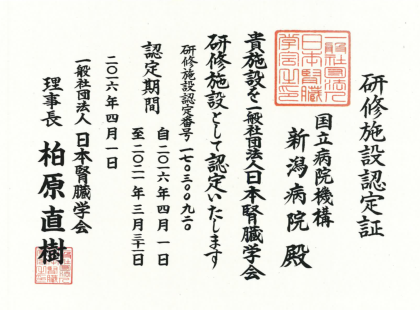 研修施設認定証
国立病院機構
新潟病院 殿
貴施設を一般社団法人日本腎臓学会
研修施設として認定いたします
研修施設認定番号 一七〇三〇〇九二〇
認定期間
自二〇一六年四月一日
至二〇二一年三月三十一日
二〇一六年四月一日
一般社団法人 日本腎臓学会
理事長 柏原直樹
一般社団法人
日本腎臓
学会之印